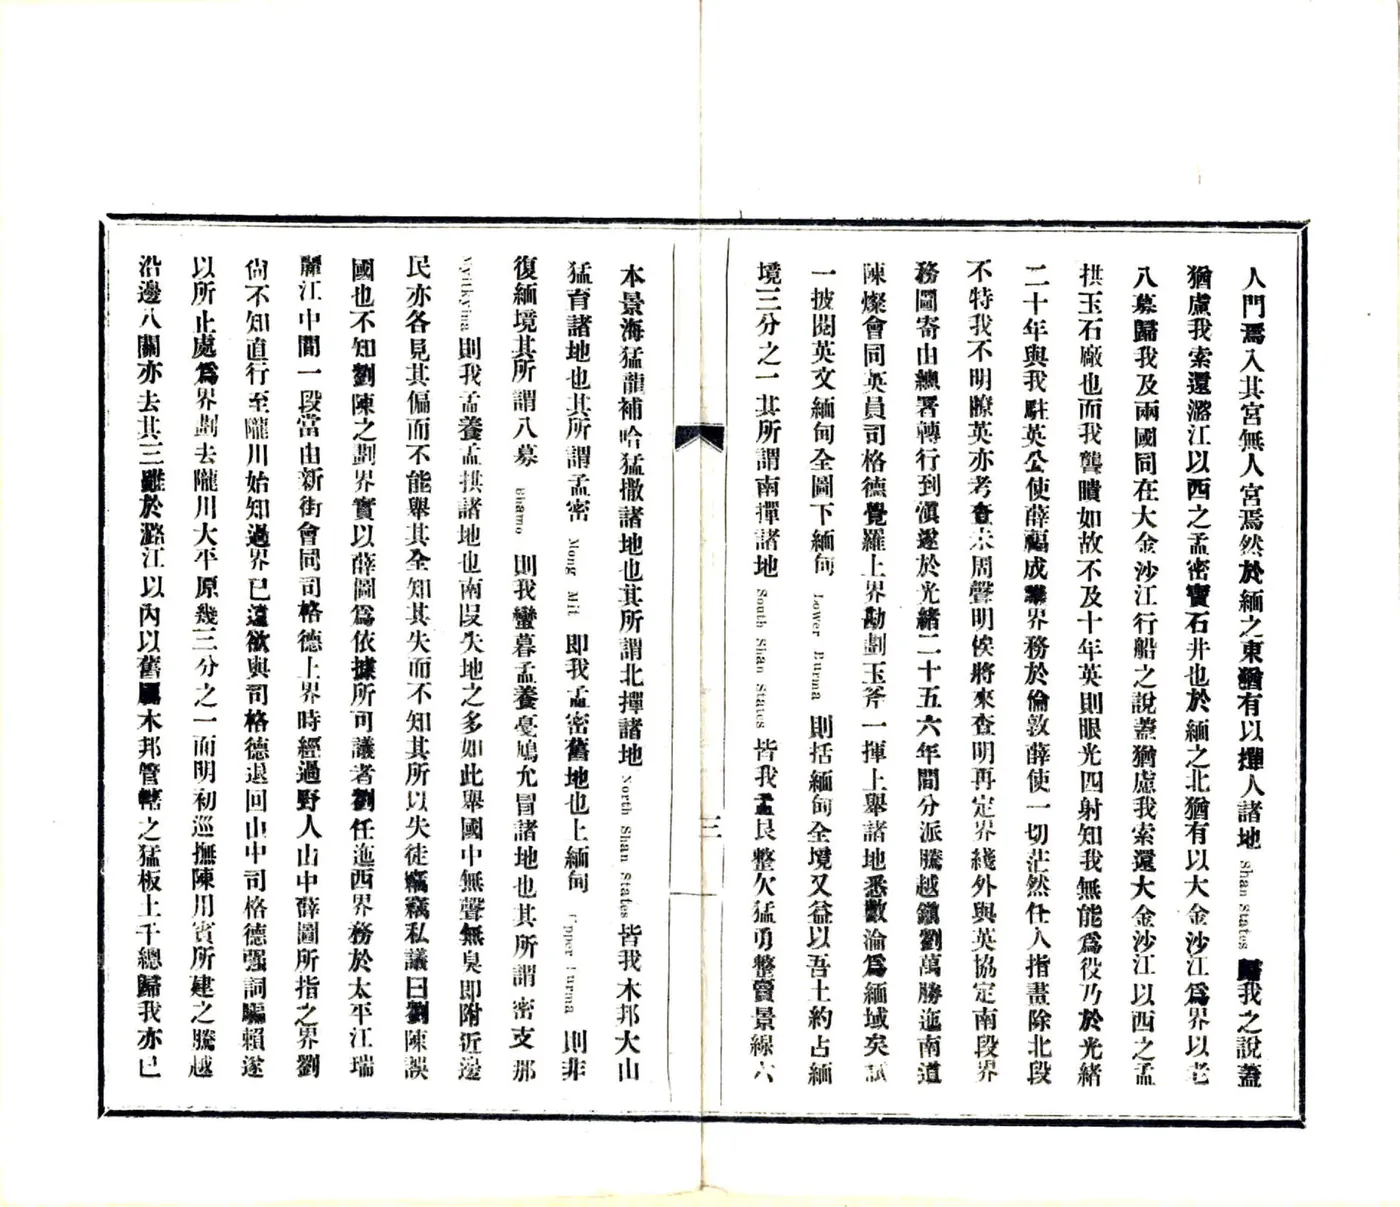 人門焉入其宮無人宮焉然於緬之東猶有以撣人諸地 Shan States 歸我之說蓋
猶慮我索還潞江以西之孟密寶石井也於緬之北猶有以大金沙江爲界以老
八募歸我及兩國同在大金沙江行船之說蓋猶慮我索還大金沙江以西之孟
拱玉石廠也而我聾瞶如故不及十年英則眼光四射知我無能爲役乃於光緒
二十年與我駐英公使薛福成舉界務於倫敦薛使一切茫然任人指畫除北段
不特我不明瞭英亦考查未周聲明俟將來查明再定界綫外與英協定南段界
務圖寄由總署轉行到滇遂於光緒二十五六年間分派騰越鎭劉萬勝迤南道
陳燦會同英員司格德覺羅上界勘劃玉斧一揮上舉諸地悉數淪爲緬域矣試
一披閱英文緬甸全圖下緬甸 Lower Burma 則括緬甸全境又益以吾土約占緬
境三分之一其所謂南撣諸地 South Shan States 皆我孟艮整欠猛勇整賣景線六
本景海猛龍補哈猛撒諸地也其所謂北撣諸地 North Shan States 皆我木邦大山
猛育諸地也其所謂孟密 Mong Mit 即我孟密舊地也上緬甸 Upper Burma 則非
復緬境其所謂八募 Bhamo 則我蠻暮孟養戞鳩允冒諸地也其所謂密支那
Myitkyina 則我孟養孟拱諸地也南段失地之多如此舉國中無聲無臭即附近邊
民亦各見其偏而不能舉其全知其失而不知其所以失徒竊竊私議曰劉陳誤
國也不知劉陳之劃界實以薛圖爲依據所可議者劉任迤西界務於太平江瑞
麗江中間一段當由新街會同司格德上界時經過野人山中薛圖所指之界劉
尙不知直行至隴川始知過界已遠欲與司格德退回山中司格德强詞騙賴遂
以所止處爲界劃去隴川大平原幾三分之一而明初巡撫陳用賓所建之騰越
沿邊八關亦去其三雖於潞江以內以舊屬木邦管轄之猛板上千總歸我亦已